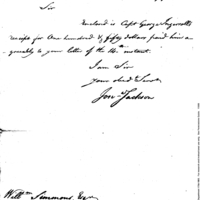 Sir
Enclosed is Capt George Ingersolls
receipt for One hundred & fifty dollars paid him a
greeably to your letter of the 14th instant.
I am Sir
your obed Servt
Jon Jackson
Willm Simmons Esqr